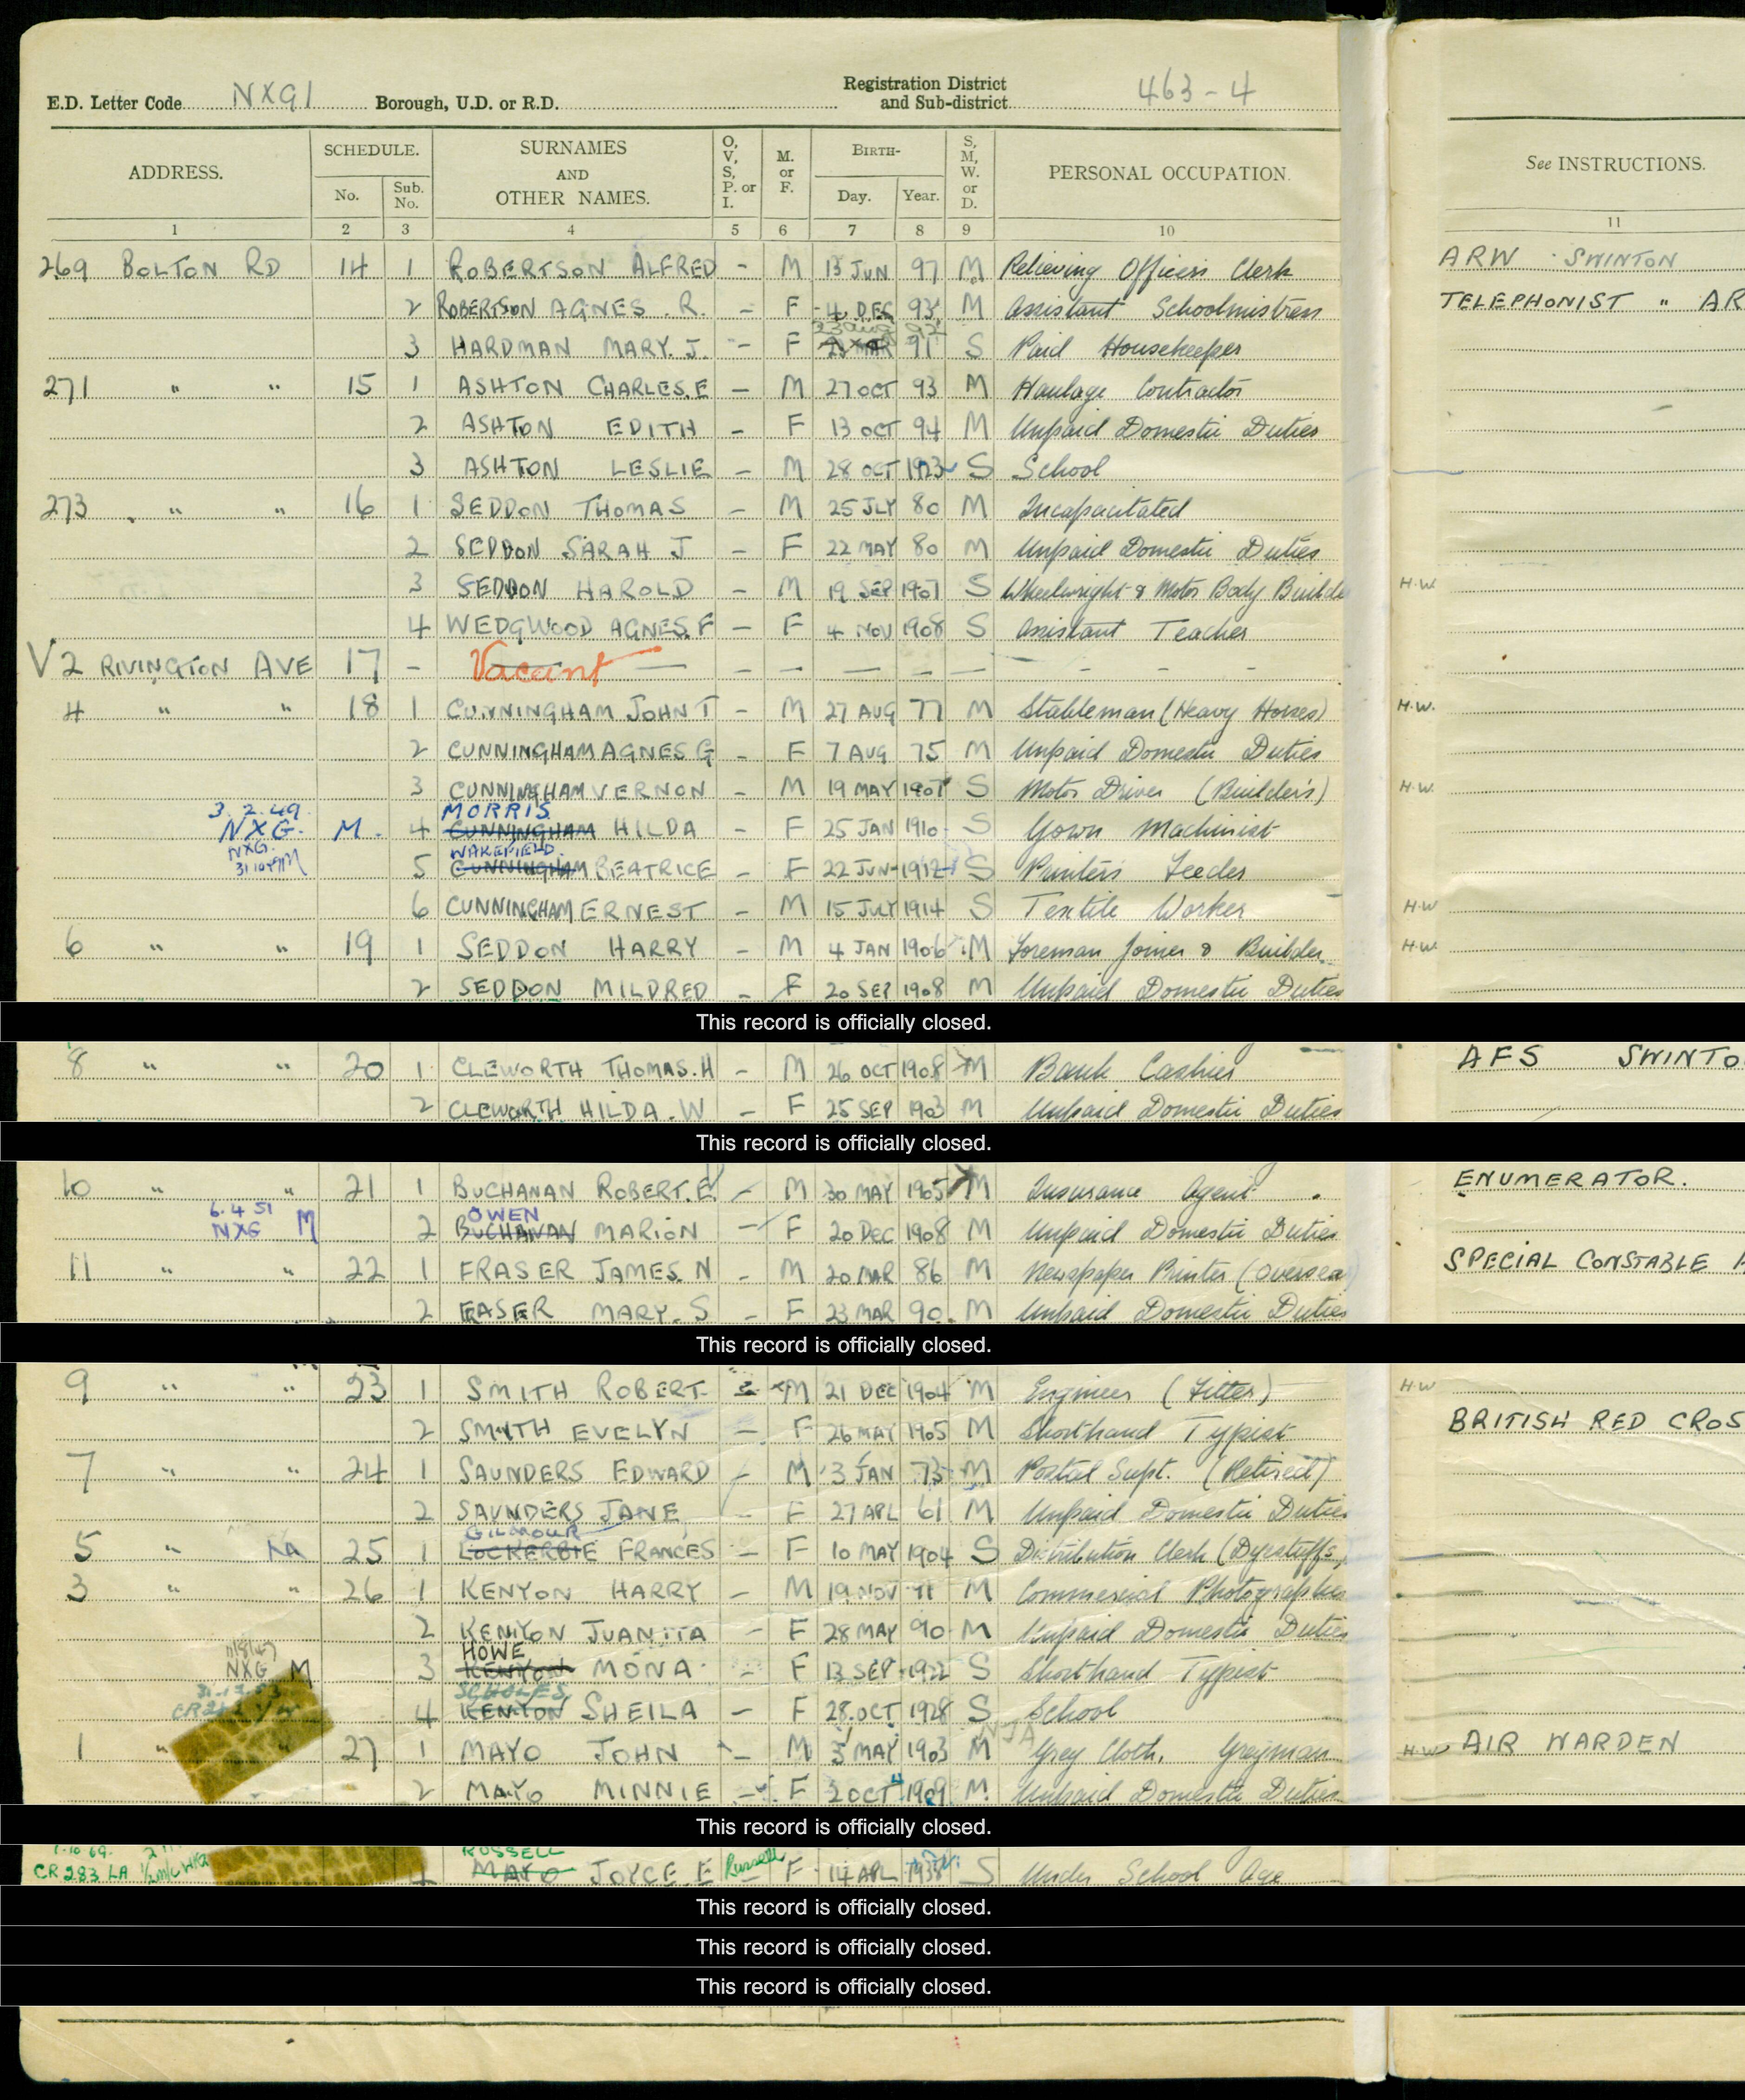 E.D. Letter Code NXG1 Borough, U.D. or R.D. Registration District and Sub-district 463-4
ADDRESS. SCHEDULE. No. Sub. No. SURNAMES AND OTHER NAMES. O, V, S, P. or I. M. or F. BIRTH- Day. Year. S, M, W. or D. PERSONAL OCCUPATION. See INSTRUCTIONS.
1 2 3 4 5 6 7 8 9 10 11
269 BOLTON RD 14 1 ROBERTSON ALFRED - M 13 JUN 97 M Relieving Officers Clerk ARW SWINTON
2 ROBERTSON AGNES. R. - F 4 DEC 93 M Assistant Schoolmistress TELEPHONIST " AR
23 Aug 92
3 HARDMAN MARY. J. - F MAR 91 S Paid Housekeeper
271 " " 15 1 ASHTON CHARLES. E - M 27 OCT 93 M Haulage Contractor
2 ASHTON EDITH - F 13 OCT 94 M Unpaid Domestic Duties
3 ASHTON LESLIE - M 28 OCT 1923 S School
273 " " 16 1 SEDDON THOMAS - M 25 JLY 80 M Incapacitated
2 SEDDON SARAH J - F 22 MAY 80 M Unpaid Domestic Duties
3 SEDDON HAROLD - M 19 SEP 1907 S Wheelwright & Motor Body Builde H.W.
4 WEDGWOOD AGNES. F - F 4 NOV 1908 S Assistant Teacher
V 2 RIVINGTON AVE 17 - Vacant - - - - - - - -
4 " " 18 1 CUNNINGHAM JOHN T - M 27 AUG 77 M Stableman (Heavy Horses) H.W.
2 CUNNINGHAM AGNES G - F 7 AUG 75 M Unpaid Domestic Duties
3 CUNNINGHAM VERNON - M 19 MAY 1907 S Motor Driver (Builders) H.W.
3.2.49. MORRIS
NXG. M. 4 CUNNINGHAM HILDA - F 25 JAN 1910 S Gown Machinist
NXG. WAKEFIELD
5 CUNNINGHAM BEATRICE - F 22 JUN 1912 S Printers Feeder
6 CUNNINGHAM ERNEST - M 15 JULY 1914 S Textile Worker H.W
6 " " 19 1 SEDDON HARRY - M 4 JAN 1906 M Foreman Joiner & Builder. H.W.
2 SEDDON MILDRED - F 20 SEP 1908 M Unpaid Domestic Duties
This record is officially closed.
8 " " 20 1 CLEWORTH THOMAS. H - M 26 OCT 1908 M Bank Cashier AFS SWINTO
2 CLEWORTH HILDA. W - F 25 SEP 1903 M Unpaid Domestic Duties
This record is officially closed.
10 " " 21 1 BUCHANAN ROBERT. E. - M 30 MAY 1905 M Insurance Agent. ENUMERATOR.
6.4 51 OWEN
NXG M 2 BUCHANAN MARION - F 20 DEC 1908 M Unpaid Domestic Duties
11 " " 22 1 FRASER JAMES. N - M 20 MAR 86 M Newspaper Printer (Oversea SPECIAL CONSTABLE
2 FRASER MARY. S - F 23 MAR 90. M Unpaid Domestic Duties
This record is officially closed.
9 " " 23 1 SMITH ROBERT - M 21 DEC 1904 M Engineer (Fitter) H.W
2 SMITH EVELYN - F 26 MAY 1905 M Shorthand Typist BRITISH RED CROS
7 " " 24 1 SAUNDERS EDWARD - M 3 JAN 73 M Postal Supt. (Retired)
2 SAUNDERS JANE - F 27 APL 61 M Unpaid Domestic Duties
GILMOUR
5 " 25 1 LOCKERBIE FRANCES - F 10 MAY 1904 S Distribution Clerk (Dyestuffs)
3 " " 26 1 KENYON HARRY - M 19 NOV 91 M Commercial Photographer
2 KENYON JUANITA - F 28 MAY 90 M Unpaid Domestic Duties
HOWE
NXG M 3 KENYON MONA - F 13 SEP 1922 S Shorthand Typist
SCHOLES
4 KENYON SHEILA - F 28 OCT 1928 S School
1 " " 27 1 MAYO JOHN - M 3 MAY 1903 M Grey Cloth. Greyman H.W AIR WARDEN
2 MAYO MINNIE - F 2 OCT 1909 M. Unpaid Domestic Duties
This record is officially closed.
RUSSELL
CR 283 LA 4 MAYO JOYCE. E Russell F 14 APL 1938 S Under School Age
This record is officially closed.
This record is officially closed.
This record is officially closed.